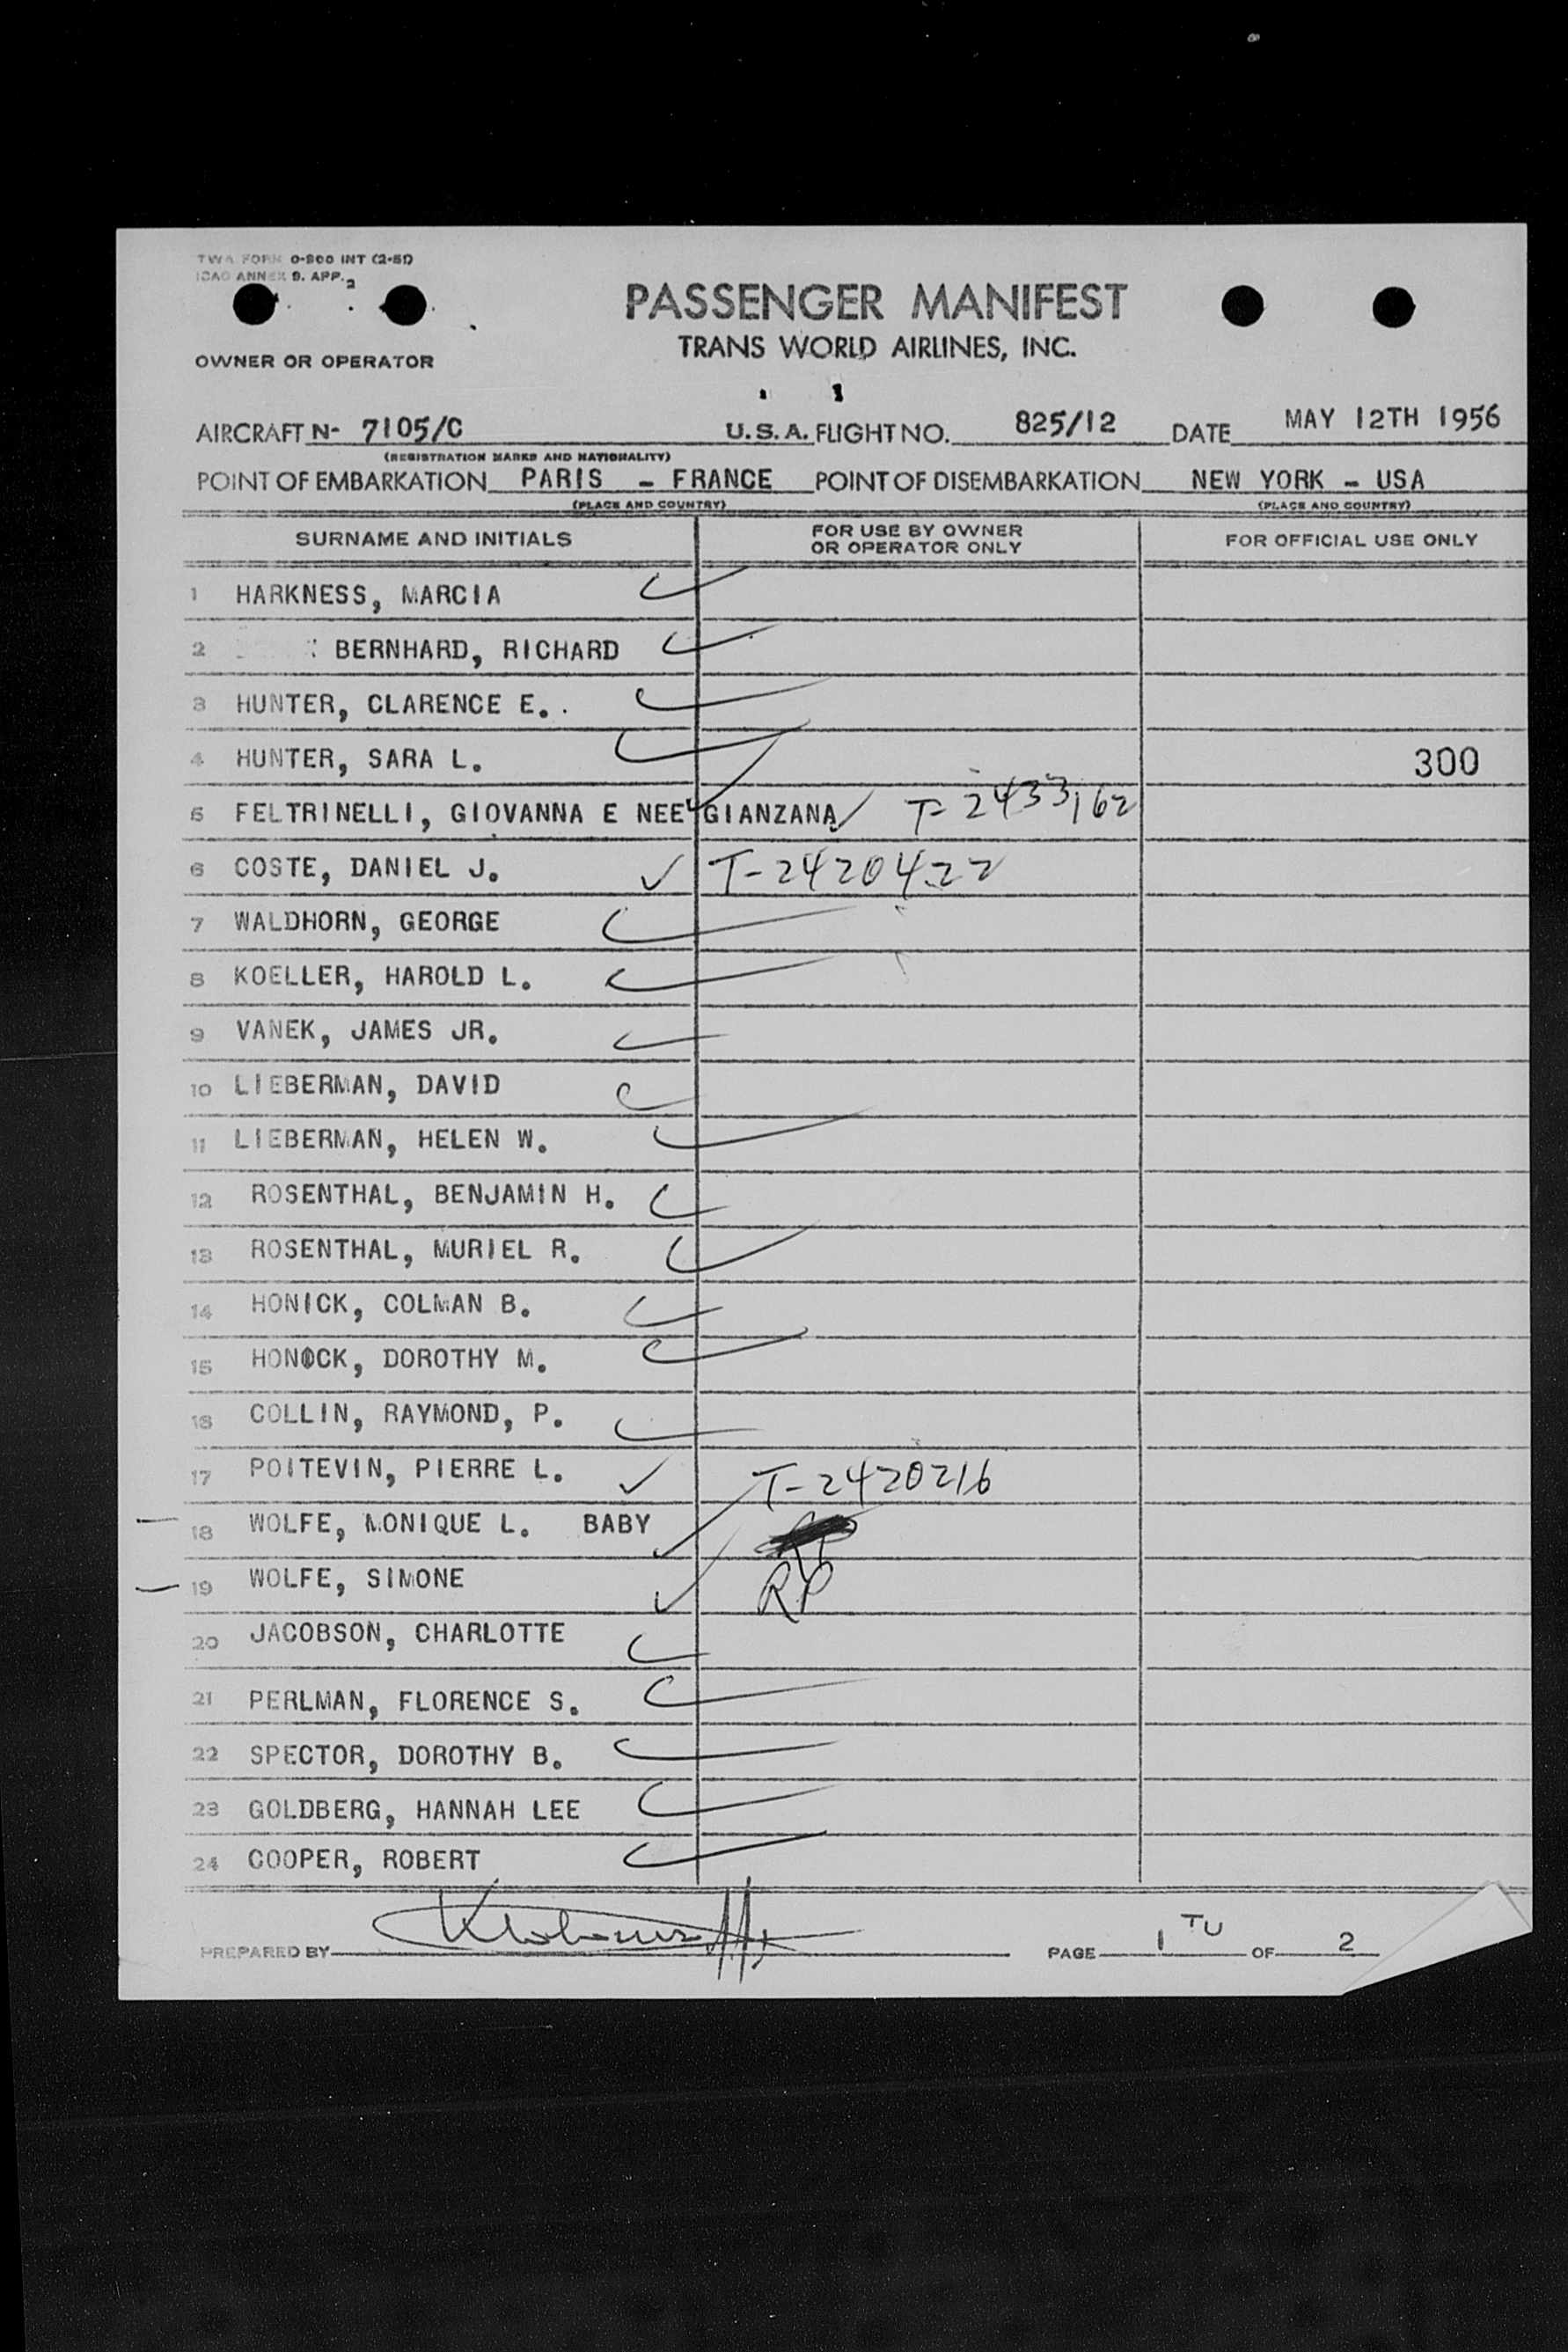 TWA FORM 0-800 INT (2-51)
ICAO ANNEX 9. APP. 2
PASSENGER MANIFEST
TRANS WORLD AIRLINES, INC.
OWNER OR OPERATOR
AIRCRAFT N- 7105/C U.S.A. FLIGHT NO. 825/12 DATE MAY 12TH 1956
(REGISTRATION MARKS AND NATIONALITY)
POINT OF EMBARKATION PARIS - FRANCE POINT OF DISEMBARKATION NEW YORK - USA
(PLACE AND COUNTRY) (PLACE AND COUNTRY)
SURNAME AND INITIALS FOR USE BY OWNER OR OPERATOR ONLY FOR OFFICIAL USE ONLY
1 HARKNESS, MARCIA
2 BERNHARD, RICHARD
3 HUNTER, CLARENCE E. .
4 HUNTER, SARA L. 300
5 FELTRINELLI, GIOVANNA E NEE GIANZANA T-2433162
6 COSTE, DANIEL J. T-2420422
7 WALDHORN, GEORGE
8 KOELLER, HAROLD L.
9 VANEK, JAMES JR.
10 LIEBERMAN, DAVID
11 LIEBERMAN, HELEN W.
12 ROSENTHAL, BENJAMIN H.
13 ROSENTHAL, MURIEL R.
14 HONICK, COLMAN B.
15 HONOCK, DOROTHY M.
16 COLLIN, RAYMOND, P.
17 POITEVIN, PIERRE L. T-2420216
18 WOLFE, MONIQUE L. BABY
19 WOLFE, SIMONE RP
20 JACOBSON, CHARLOTTE
21 PERLMAN, FLORENCE S.
22 SPECTOR, DOROTHY B.
23 GOLDBERG, HANNAH LEE
24 COOPER, ROBERT
PREPARED BY PAGE 1 TU OF 2